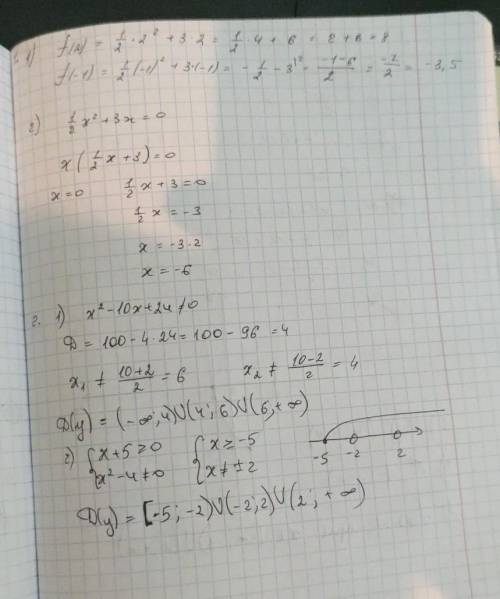 1) f(2) = 1/2 · 2² + 3 · 2 = 1/2 · 4 + 6 = 2 + 6 = 8
f(-1) = 1/2 (-1)² + 3·(-1) = - 1/2 - 3 = (-1-6)/2 = -7/2 = -3,5
2) 1/2 x² + 3x = 0
x (1/2 x + 3) = 0
x = 0 1/2 x + 3 = 0
1/2 x = -3
x = -3·2
x = -6
2. 1) x² - 10x + 24 ≠ 0
D = 100 - 4·24 = 100 - 96 = 4
x₁ ≠ (10+2)/2 = 6 x₂ ≠ (10-2)/2 = 4
D(y) = (-∞; 4) U (4; 6) U (6; +∞)
2) { x + 5 ≥ 0 { x ≥ -5
x² - 4 ≠ 0 x ≠ ± 2
-5 -2 2
D(y) = [-5; -2) U (-2; 2) U (2; +∞)